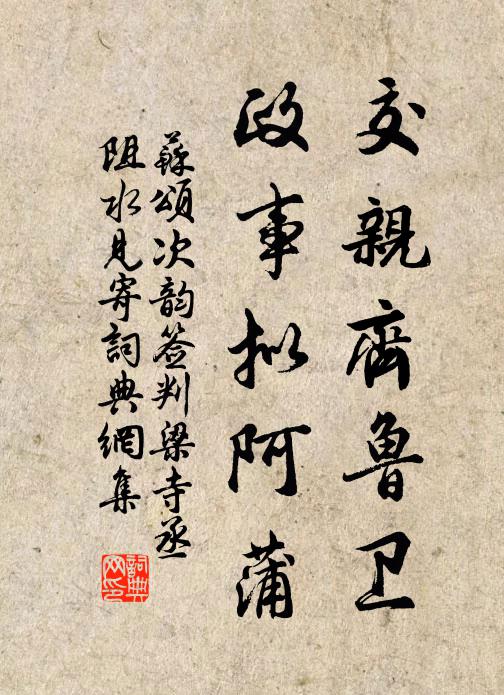 交親齊魯卫
政事拟阿蒲
蘇頌次韵签判梁寺丞
阻水見寄詞典網集
詞典网印